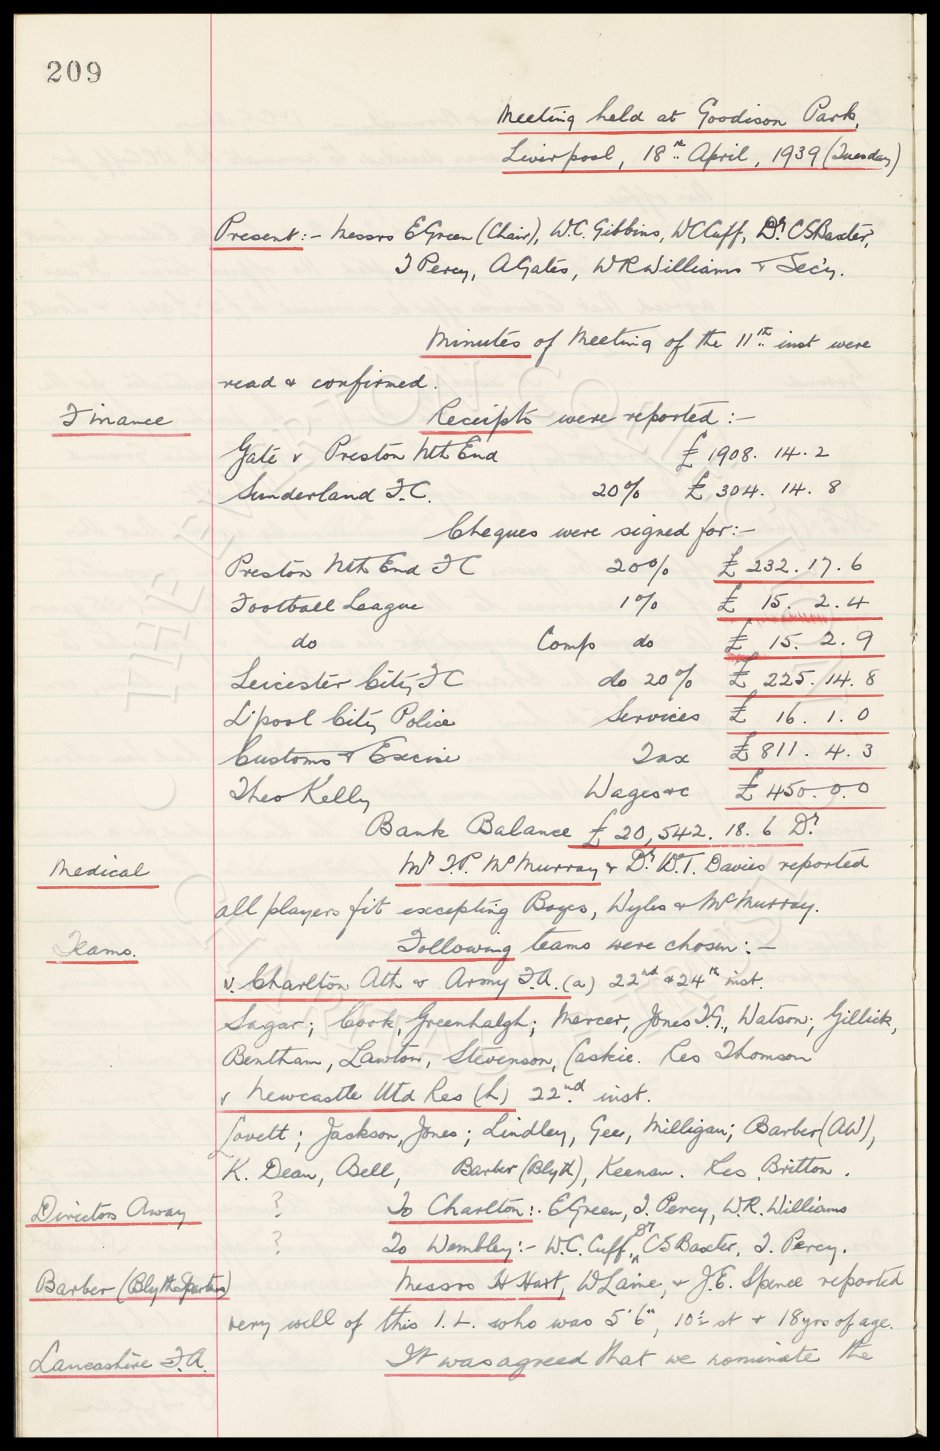 209
Meeting held at Goodison Park,
Liverpool, 18th April, 1939 (Tuesday)
Present:- Messrs E Green (Chair), W.C. Gibbins, W C Cuff, Dr. C S Baxter,
T Percy, A Gates, W R Williams & Sec'y.
Minutes of Meeting of the 11th inst were
read & confirmed.
Finance Receipts were reported:-
Gate v Preston Nth End £ 1908. 14. 2
Sunderland F.C. 20% £ 304. 14. 8
Cheques were signed for:-
Preston Nth End F C 20% £ 232. 17. 6
Football League 1% £ 15. 2. 4
do Comps do £ 15. 2. 9
Leicester City F C do 20% £ 225. 14. 8
L'pool City Police Services £ 16. 1. 0
Customs & Excise Tax £ 811. 4. 3
Theo Kelly Wages &c £ 450. 0. 0
Bank Balance £ 20,542. 18. 6 Dr.
Medical Mr. J.P. McMurray & Dr. W.T. Davies reported
all players fit excepting Boyes, Wyles & McMurray.
Teams. Following teams were chosen:-
v. Charlton Ath & Army F.A. (a) 22nd & 24th inst.
Sagar; Cook, Greenhalgh; Mercer, Jones T.G., Watson; Gillick,
Bentham, Lawton, Stevenson, Caskie. Res Thomson
v Newcastle Utd Res (h) 22nd inst.
Lovett; Jackson, Jones; Lindley, Gee, Milligan; Barber (AW),
K. Dean, Bell, Barber (Blyth), Keenan. Res. Britton.
Directors Away ? To Charlton:- E Green, T. Percy, W.R. Williams
? To Wembley:- W.C. Cuff, Dr C S Baxter, T. Percy.
Barber (Blyth Spartans) Messrs H Hart, W Laine, & J.E. Spence reported
very well of this I.L. who was 5' 6", 10½ st & 18 yrs of age.
Lancashire F.A. It was agreed that we nominate the